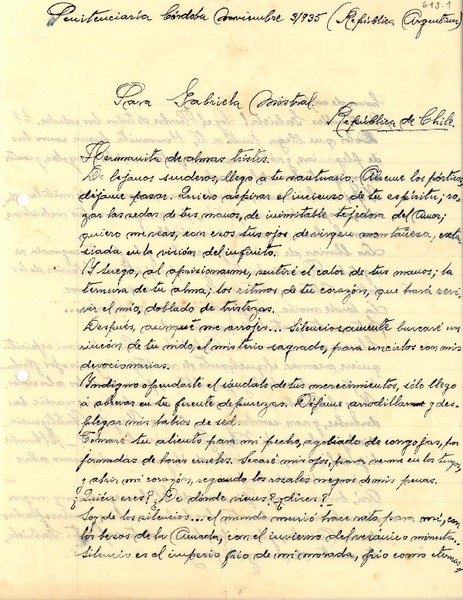 613-1
Penitenciaría Córdoba Noviembre 3/935 (República Argentina)
Para Gabriela Mistral.
República de Chile.
Hermanita de almas tristes.
De lejanos senderos, llego a tu santuario. Abreme los pórticos,
déjame pasar. Quiero aspirar el incienso de tu espíritu; ro-
zar las sedas de tus manos, de inimitable tejedora del Amor;
quiero me veas, con esos tus ojos de virgen montañesa, exta-
siada en la visión del infinito.
Y luego, al aprisionarme, sentiré el calor de tus manos; la
ternura de tu alma; los ritmos de tu corazón, que hará revi-
vir el mío, doblado de tristezas.
Después, aunque me arrojes... Silenciosamente buscaré un
rincón de tu nido, el misterio sagrado, para uncirlos con mis
devocionarias.
Indigno ofrendarte el sándalo de tus merecimientos, sólo llego
á abrevar en tu fuente de purezas. Déjame arrodillarme y des-
plegar mis labios de sed.
Tomaré tu aliento para mi pecho, agobiado de congojas, por
jornadas de horas crueles. Secaré mis ojos, para verme en los tuyos,
y abriré mi corazón, regando los rosales negros de mis penas.
¿Quién eres? ¿De dónde vienes? ¿dices?
Soy de los silencios... el mundo murió hace rato para mí, con
los besos de la Amada, con el invierno del veránico minuto...
Silencio es el imperio frío de mi morada, frío como